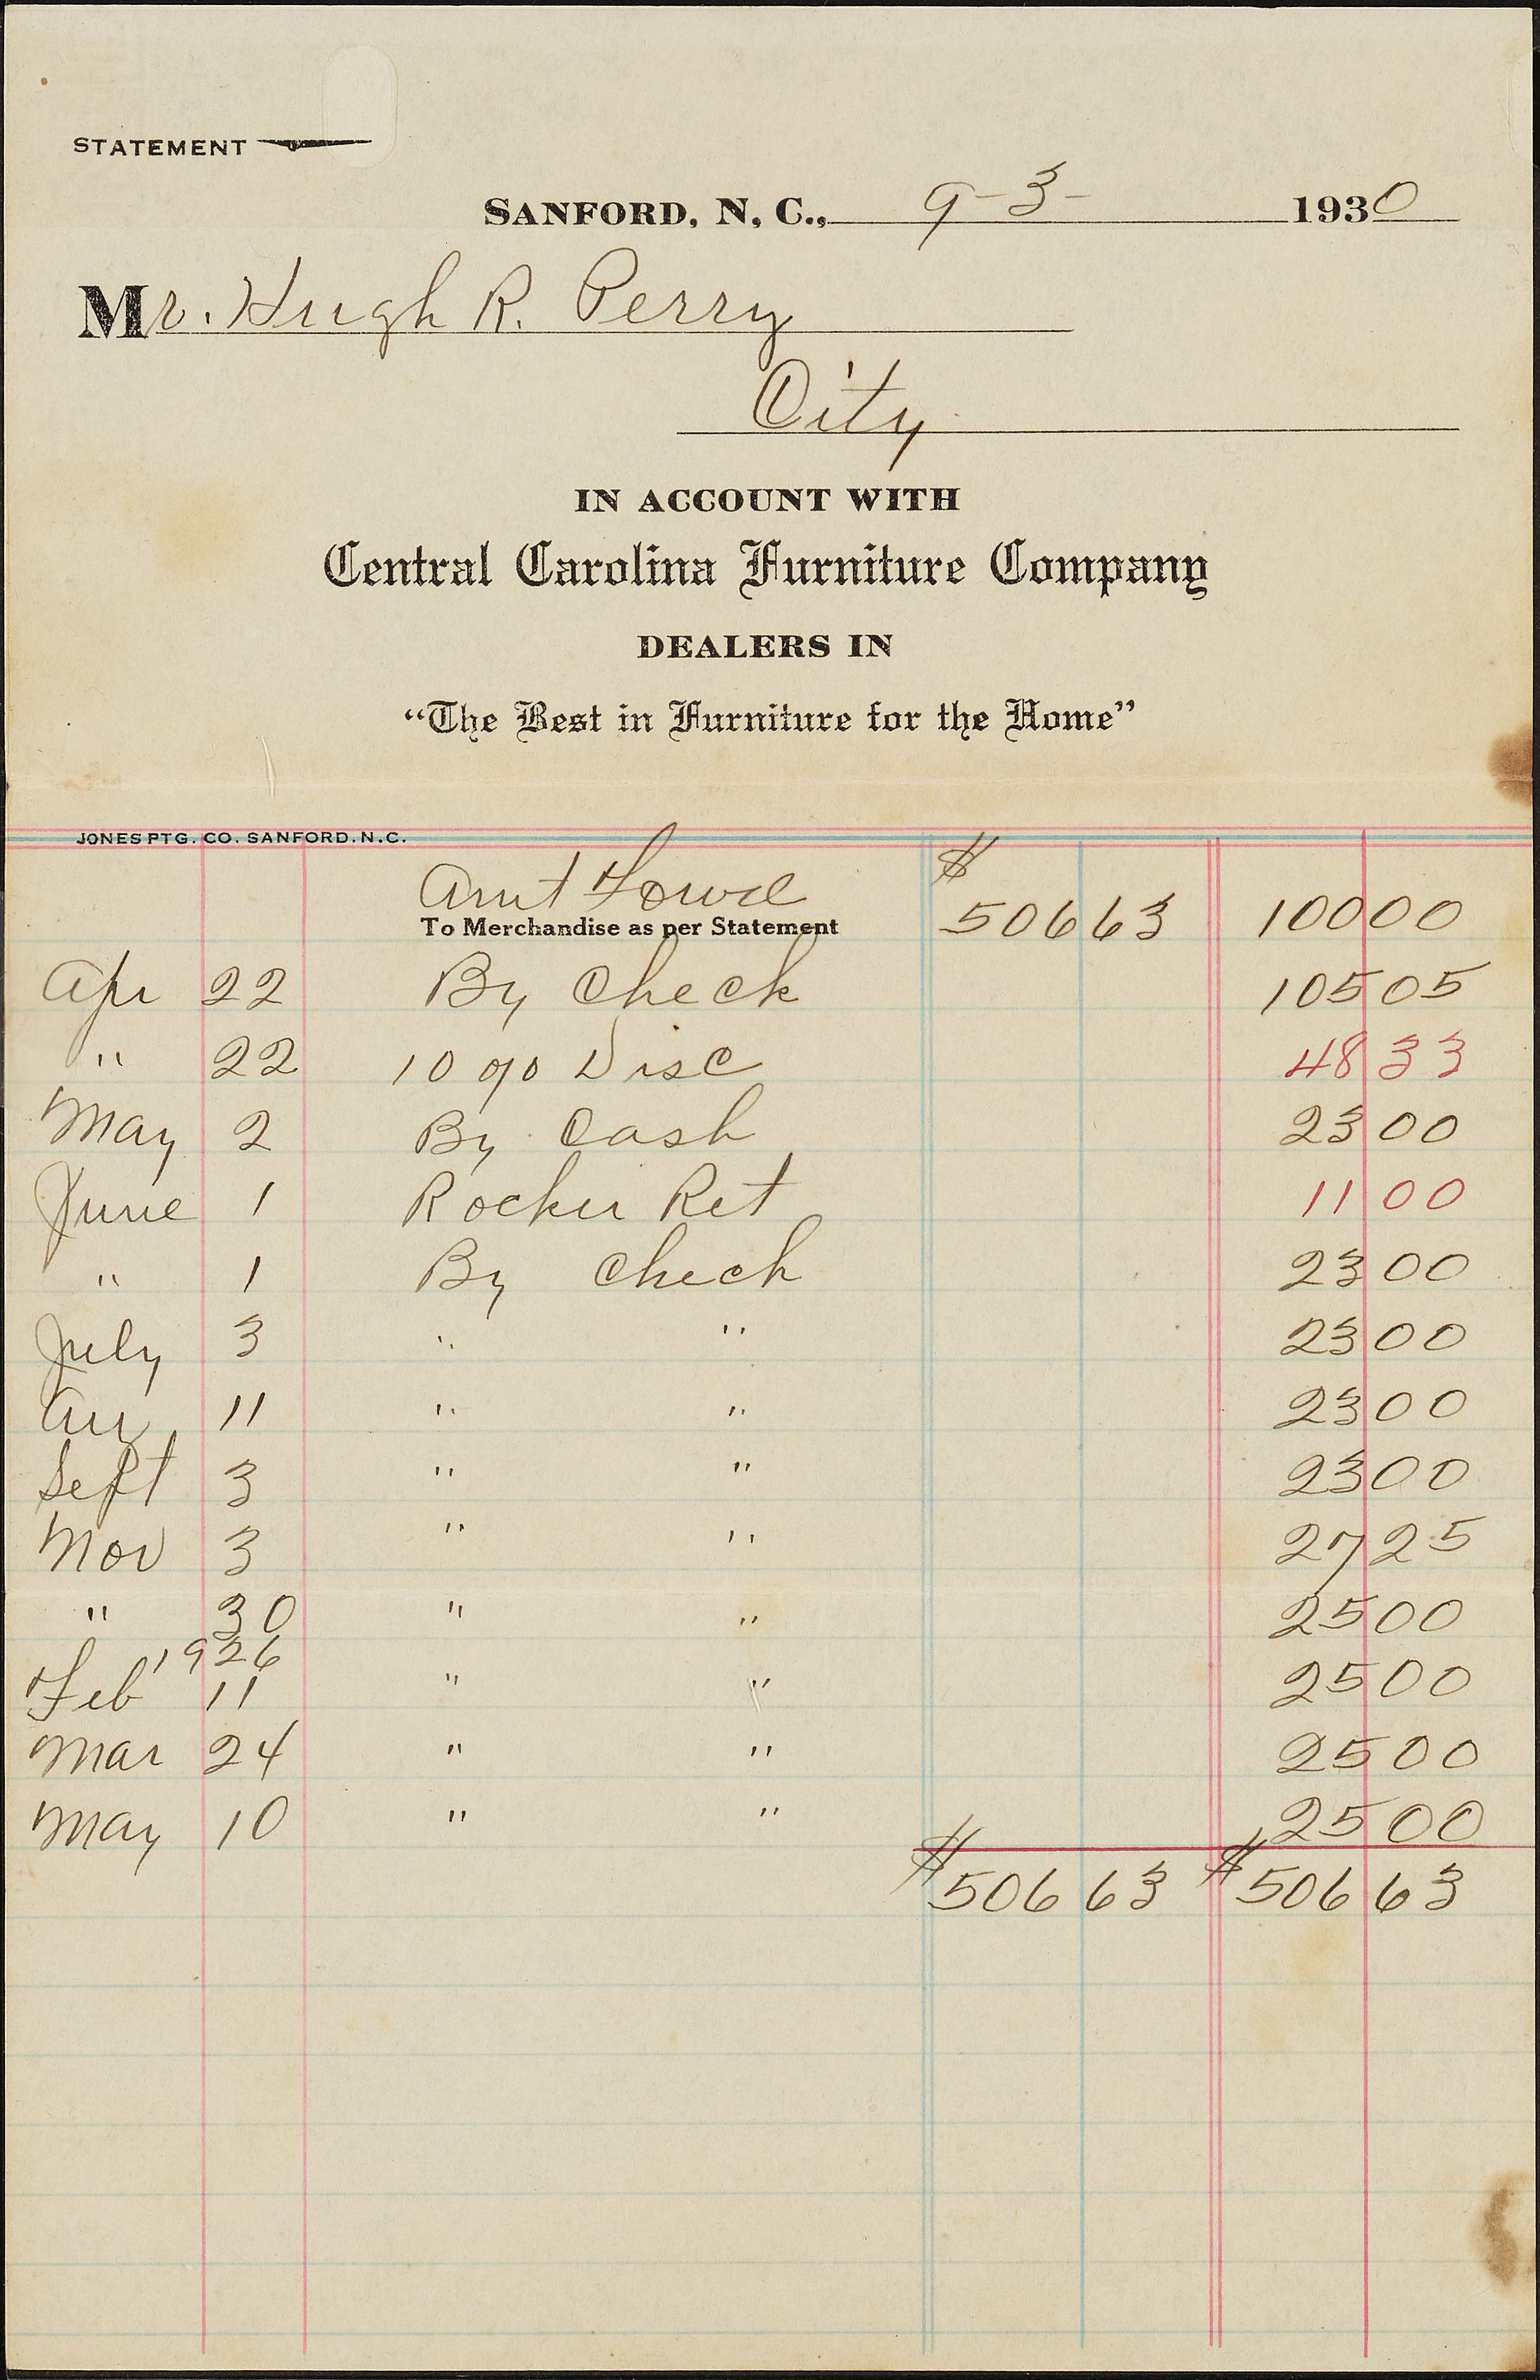 STATEMENT
SANFORD, N. C., 9-3- 1930
Mr. Hugh R. Perry
City
IN ACCOUNT WITH
Central Carolina Furniture Company
DEALERS IN
“The Best in Furniture for the Home”
JONES PTG. CO. SANFORD. N. C.
Amt Forwd $
To Merchandise as per Statement 506 63 100 00
Apr 22 By Check 105 05
" 22 10 % Disc 48 33
May 2 By Cash 23 00
June 1 Rocker Ret 11 00
" 1 By Check 23 00
July 3 " " 23 00
Au 11 " " 23 00
Sept 3 " " 23 00
Nov 3 " " 27 25
" 30 " " 25 00
1926
Feb 11 " " 25 00
Mar 24 " " 25 00
May 10 " " 25 00
$506 63 $506 63